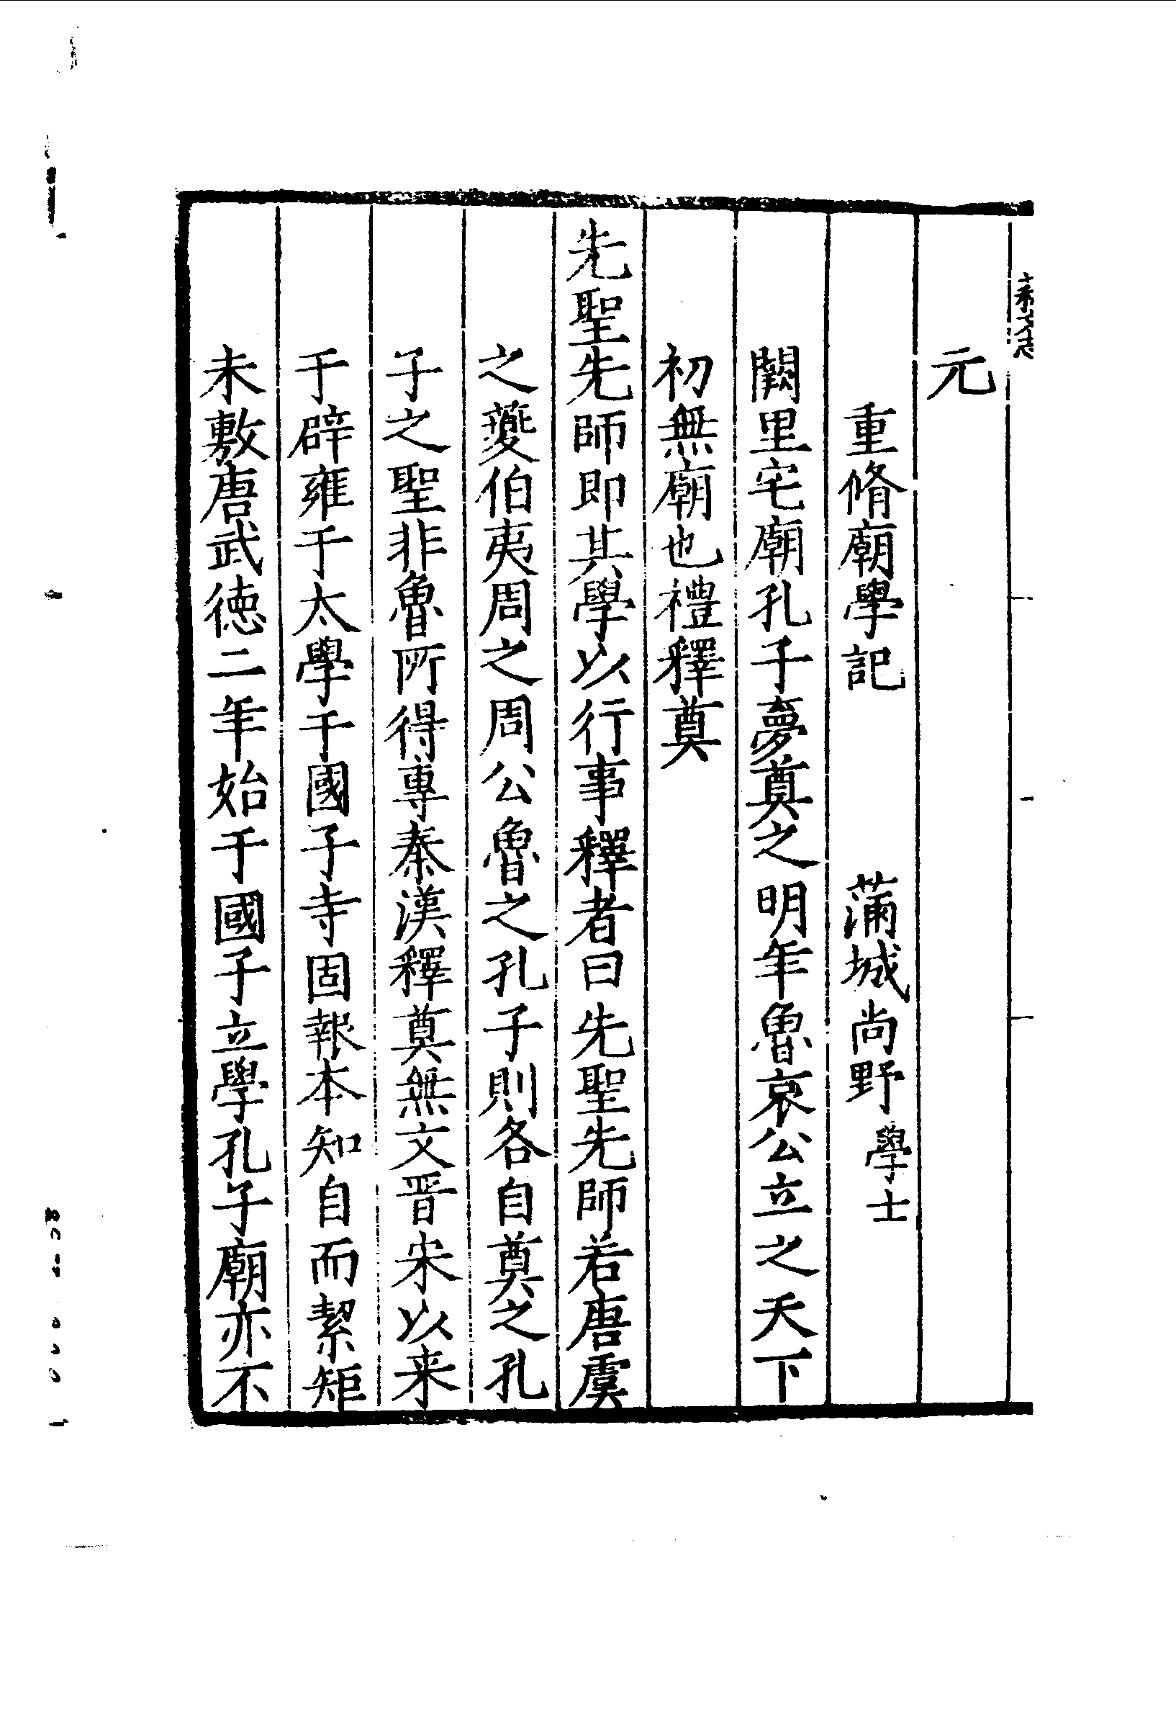 元
重脩廟學記 蒲城尚野學士
闕里宅廟孔子夢奠之明年魯哀公立之天下
初無廟也禮釋奠
先聖先師即其學以行事釋者曰先聖先師若唐虞
之夔伯夷周之周公魯之孔子則各自奠之孔
子之聖非魯所得專秦漢釋奠無文晋宋以来
于辟雍于太學于國子寺固報本知自而絜矩
未敷唐武徳二年始于國子立學孔子廟亦不